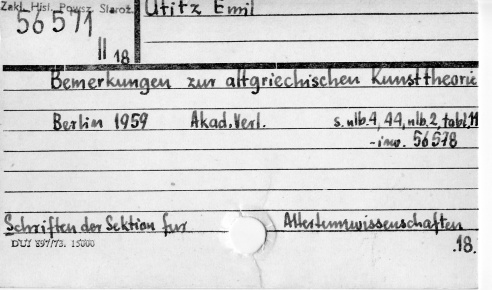 Zakł. Hist. Powsz. Staroż.
56571
II 18
Utitz Emil
Bemerkungen zur altgriechischen Kunsttheorie
Berlin 1959 Akad. Verl. s. nlb. 4, 44, nlb. 2, tabl. 11
- inw. 56578
Schriften der Sektion fur Altertumwissenschaften
DUJ 897/73. 15000 .18.